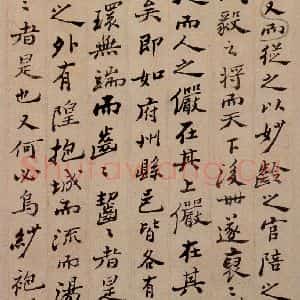 又而從之以妙齡之官陪之
毅之將而天下後毋遂衰
而人之儼在其上儼在其
矣即如府州縣邑皆各有
環無端而齒々齒々者是
之外有隍抱城而流而湯
々者是也又何必烏紗袍
Shufawang.Cn